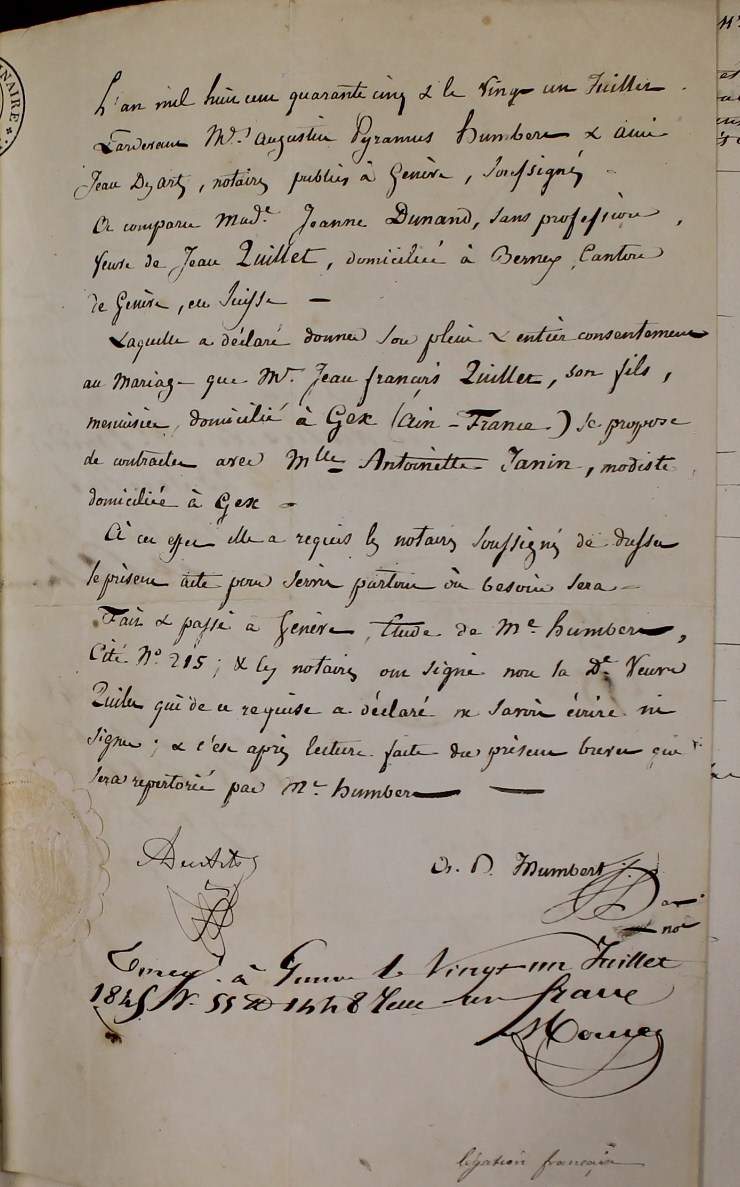 NAIRE
L'an mil huit cent quarante cinq & le vingt un Juillet
Pardevant Mrs. Augustin Pyramus Humbert & Ami
Jean Dyarts, notaires publics à Genève, soussignés
A comparu Made. Jeanne Dunand, sans profession,
veuve de Jean Quillet, domiciliée à Bernex, Canton
de Genève, en Suisse —
Laquelle a déclaré donner son plein & entier consentement
au mariage que Mr. Jean françois Quillet, son fils,
menuisier, domicilié à Gex (Ain - France) se propose
de contracter avec Mlle Antoinette Janin, modiste
domiciliée à Gex —
A cet effet elle a requis les notaires soussignés de dresser
le présent acte pour servir partout où besoin sera —
Fait & passé à Genève, Etude de Me. humbert,
Cité No. 215; & les notaires ont signé non la De. Veuve
Quillet qui de ce requise a déclaré ne savoir écrire ni
signer; & c'est après lecture faite du présent brevet qui
sera repertorié par Mr. humbert —
A. P. Humbert
not
à Genève le vingt un Juillet
1845 un franc
légation française